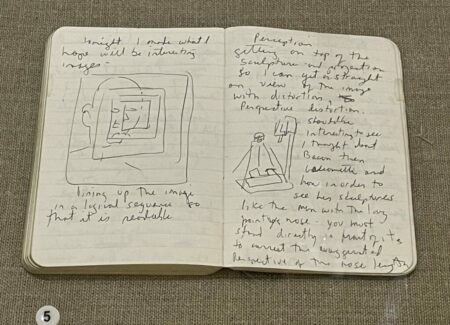 Tonight I make what I
hope will be interesting
images-
lining up the image
in a logical sequence so
that it is readable
Perception
getting on top of the
sculpture and projection
so I can get a straight
on view of the image
with distortion,
Perspective distortion.
should be
interesting to see
I thought about
Bacon then
and
how in order to
see his sculptures
like the man with the long
pointy nose - you must
stand directly in front of it
to correct the exaggerated
perspective of the nose length
5